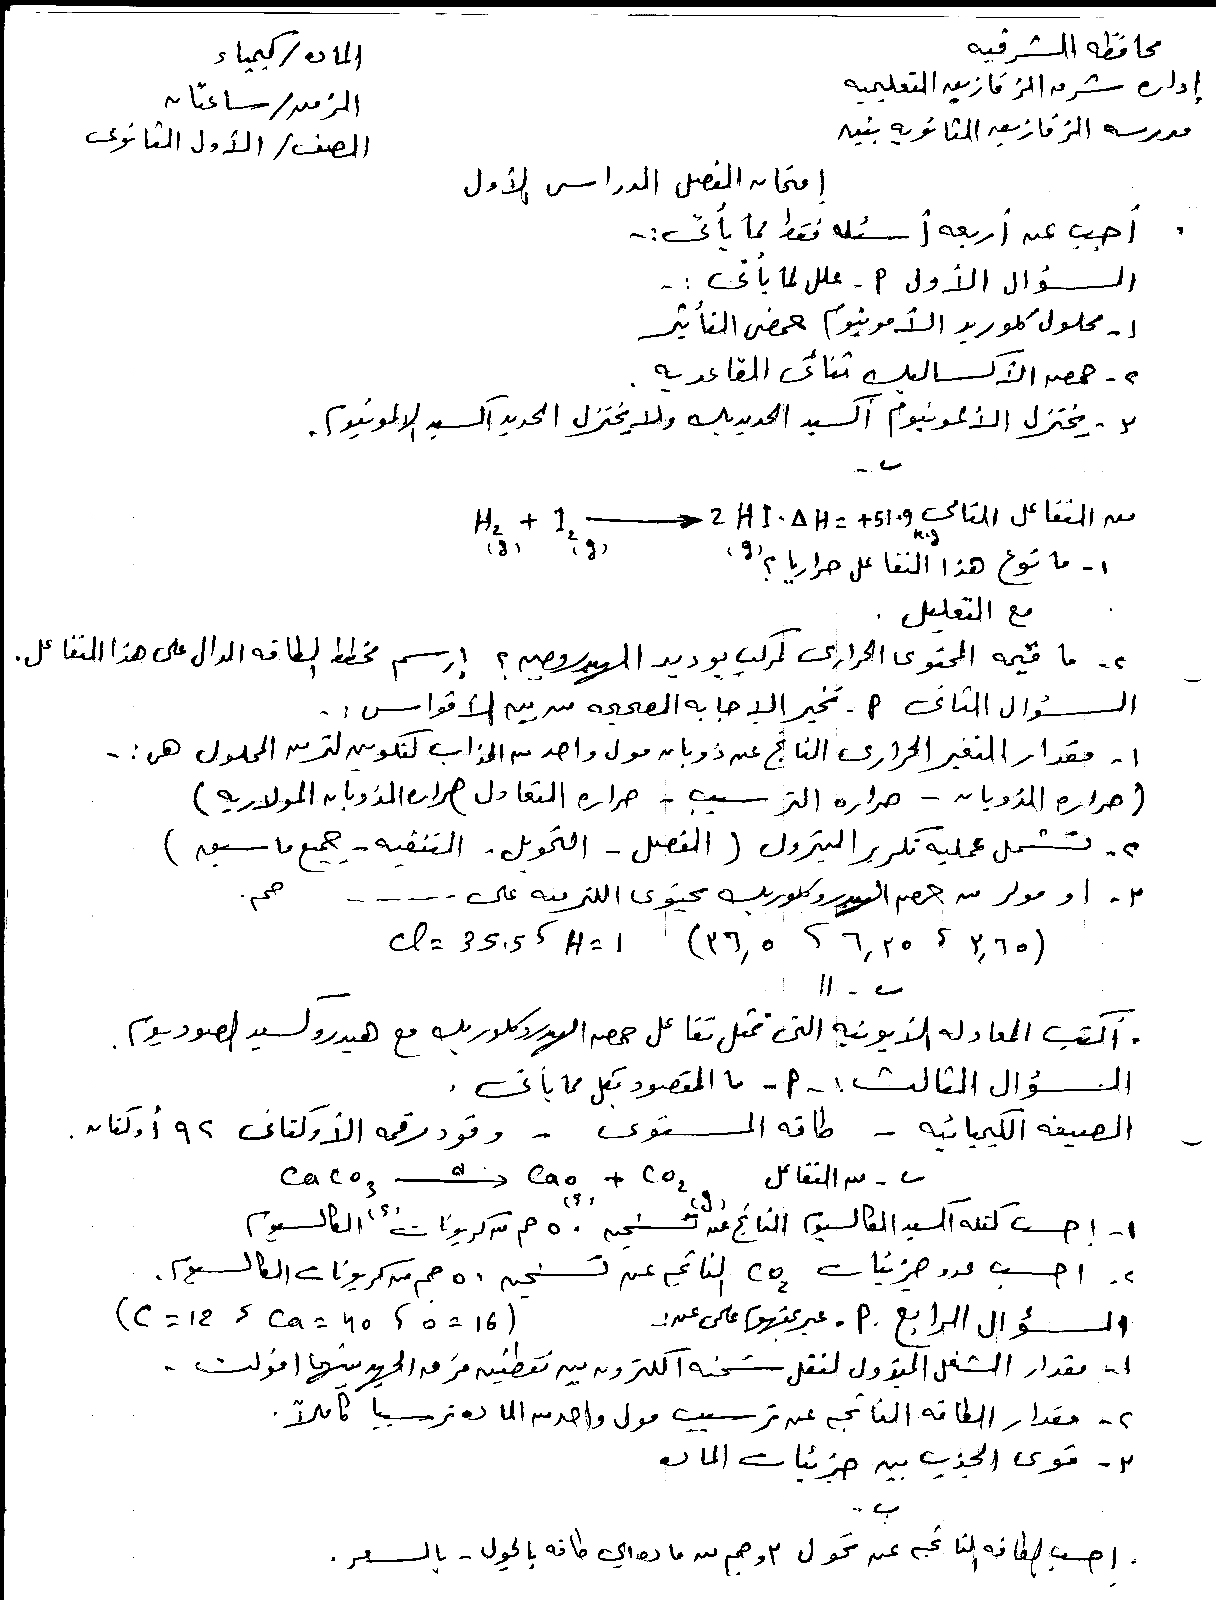 محافظه الشرقيه
المادة/كيمياء
إداره شرق الزقازيق التعليميه
الزمن/ساعتان
مدرسه الزقازيق الثانويه بنين
الصف/ الأول الثانوى
إمتحان الفصل الدراسى الأول
أجب عن أربعه أسئله فقط مما يأتى:-
السؤال الأول م - علل لما يأتى :-
١- محلول كلوريد الأمونيوم حمضى التأثير
٢- حمض الأكساليك ثنائى القاعديه .
٣- يختزل الألمونيوم أكسيد الحديديك ولا يختزل الحديد أكسيد الالمونيوم .
ب -
من التفاعل التالى H2(g) + I2(g) ⟶ 2 HI(g) . ΔH = +51.9 K.j
١- ما نوع هذا التفاعل حراريا ؟
مع التعليل .
٢- ما قيمه المحتوى الحرارى لمركب يوديد الهيدروجين ؟ إرسم مخطط الطاقه الدال على هذا التفاعل .
السؤال الثانى م - تخير الإجابه الصحيحه من بين الأقواس :-
١- مقدار التغير الحرارى الناتج عن ذوبان مول واحد من المذاب لتكوين لتر من المحلول هى :-
(حراره الذوبان - حراره الترسيب - حراره التعادل حراره الذوبان المولاريه)
٢- تشتمل عملية تكرير البترول ( الفصل - التحويل - التنقيه - جميع ما سبق )
٣- ا, مولر من حمض الهيدروكلوريك يحتوى اللتر منه على ----- جم .
(٣,٦٥ ، ٦,٢٥ ، ٣٦,٥) Cl = 35.5 ، H = 1
ب - ١١
أكتب المعادله الأيونيه التى تمثل تفاعل حمض الهيدروكلوريك مع هيدروكسيد الصوديوم .
السؤال الثالث :- م - ما المقصود بكل مما يأتى .
الصيغه الكيميائيه - طاقه المستوى - وقود رقمه الأوكتانى ٩٢ أوكتان .
ب - من التفاعل CaCO3(s) —Δ→ CaO(s) + CO2(g)
١- إحسب كتله أكسيد الكالسيوم الناتج عن تسخين ٥٠ جم من كربونات الكالسيوم
٢- احسب عدد جزيئات CO2 الناتجه عن تسخين ٥٠ جم من كربونات الكالسيوم .
(C = 12 ، Ca = 40 ، O = 16)
السؤال الرابع م - عبر بمفهوم علمى عن :-
١- مقدار الشغل المبذول لنقل شحنه الكترون بين نقطتين فرق الجهد بينهما ا فولت -
٢- مقدار الطاقه الناتجه عن ترسيب مول واحد من الماده ترسيبا كاملاً .
٣- قوى الجذب بين جزيئات الماده
ب -
إحسب الطاقه الناتجه عن تحول ٣, جم من ماده إلى طاقه بالجول - بالسعر .